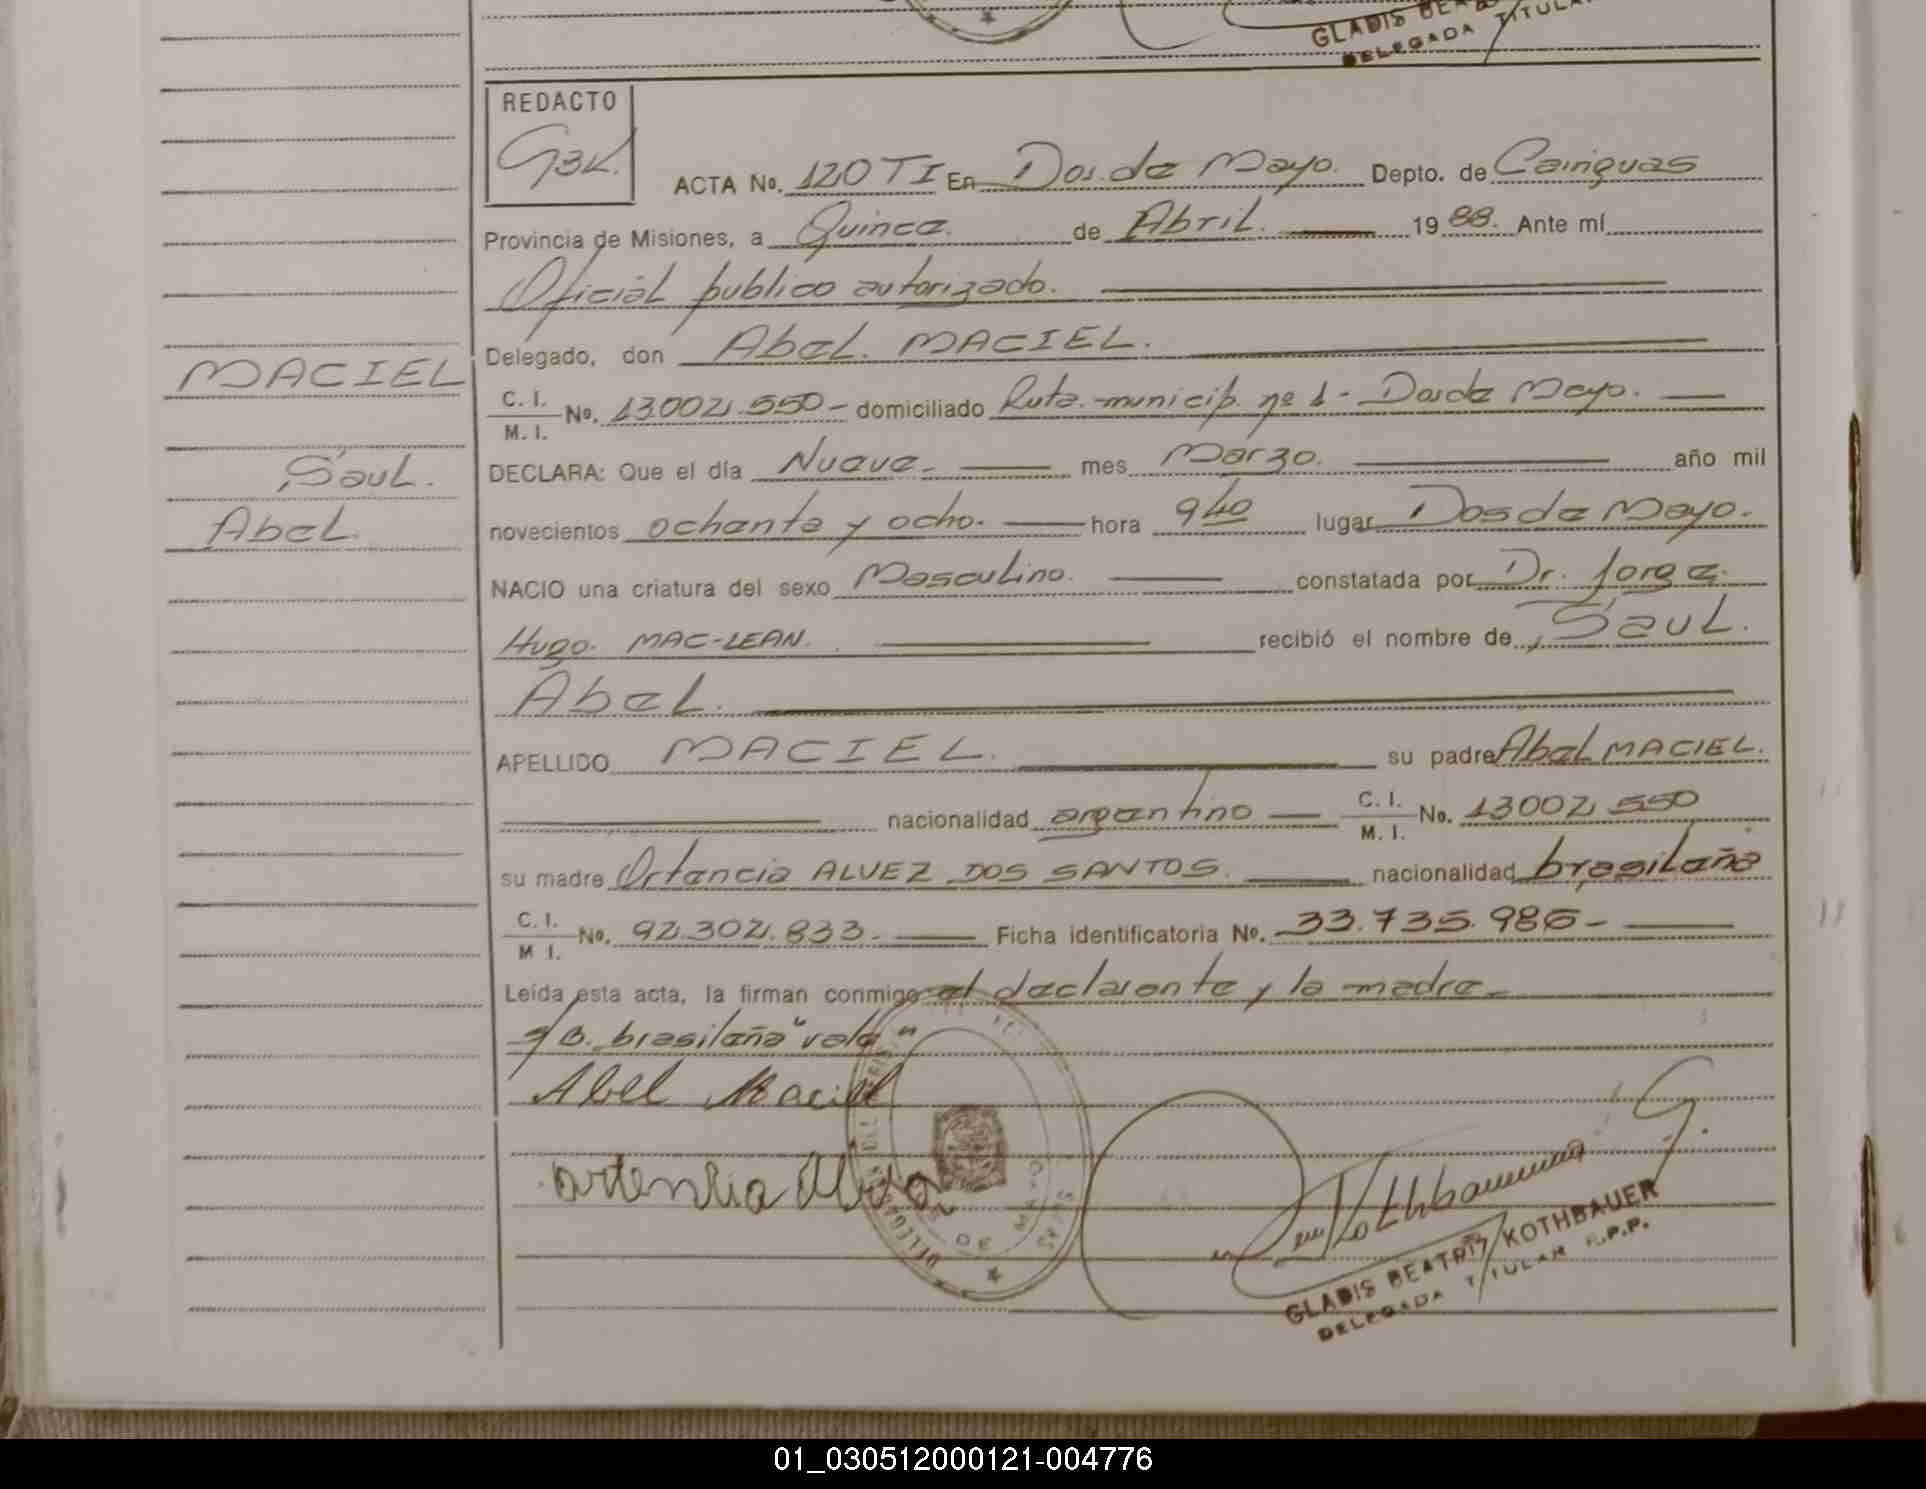 GLADIS
DELEGADA TITULAR
REDACTO
GBK.
ACTA No. 120 TI En Dos de Mayo. Depto. de Cainguas
Provincia de Misiones, a Quince. de Abril. 1988. Ante mí
Oficial publico autorizado.
Delegado, don Abel. MACIEL.
MACIEL
C. I. / M. I. No. 13.002.550- domiciliado Ruta. municip. nº 1- Dos de Mayo.
DECLARA: Que el día Nueve- mes Marzo. año mil
Saul.
novecientos ochenta y ocho. hora 940 lugar Dos de Mayo.
Abel.
NACIO una criatura del sexo Masculino. constatada por Dr. Jorge.
Hugo. MAC-LEAN. recibió el nombre de Saul.
Abel.
APELLIDO MACIEL. su padre Abel MACIEL.
nacionalidad argentino C. I. / M. I. No. 13002.550
su madre Ortencia ALVEZ DOS SANTOS. nacionalidad brasileña
C. I. / M I. No. 92.302.833. Ficha identificatoria No. 33.735.986-
Leída esta acta, la firman conmigo el declarante y la madre-
s/B. brasileña "vale"
Abel Maciel
ortencia
Kothbauer G.
GLADIS BEATRIZ KOTHBAUER
DELEGADA TITULAR R.P.P.
01_030512000121-004776